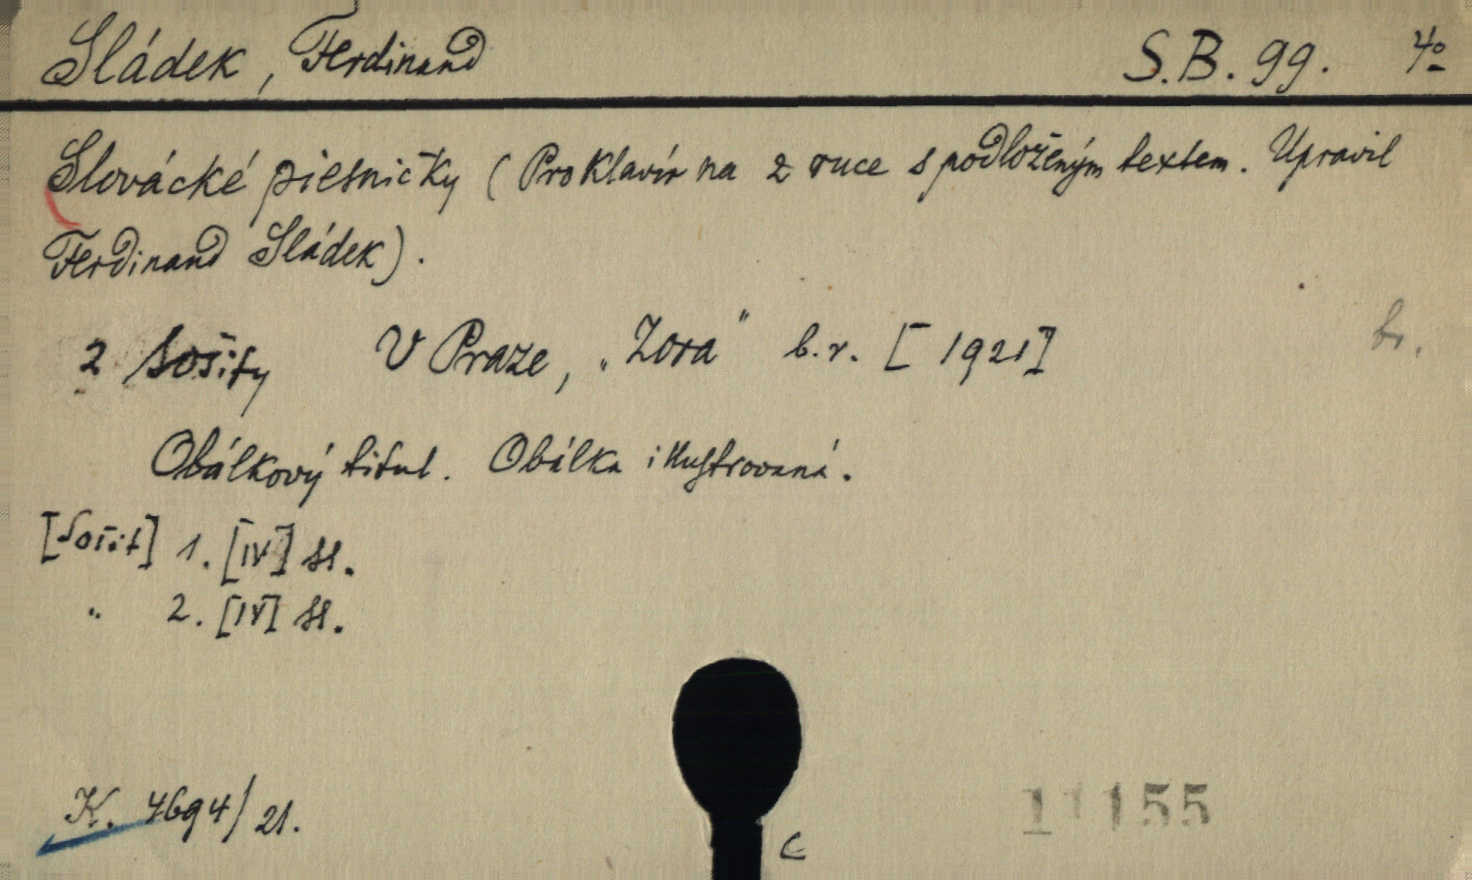 Sládek, Ferdinand S.B. 99. 4º
Slovácké piesničky (Pro klavír na 2 ruce s podloženým textem. Upravil
Ferdinand Sládek).
2 sošity V Praze, „Zora" b.r. [1921] br.
Obálkový titul. Obálka illustrovaná.
[Sošit] 1. [IV] st.
" 2. [IV] st.
K. 4694/21.
11155